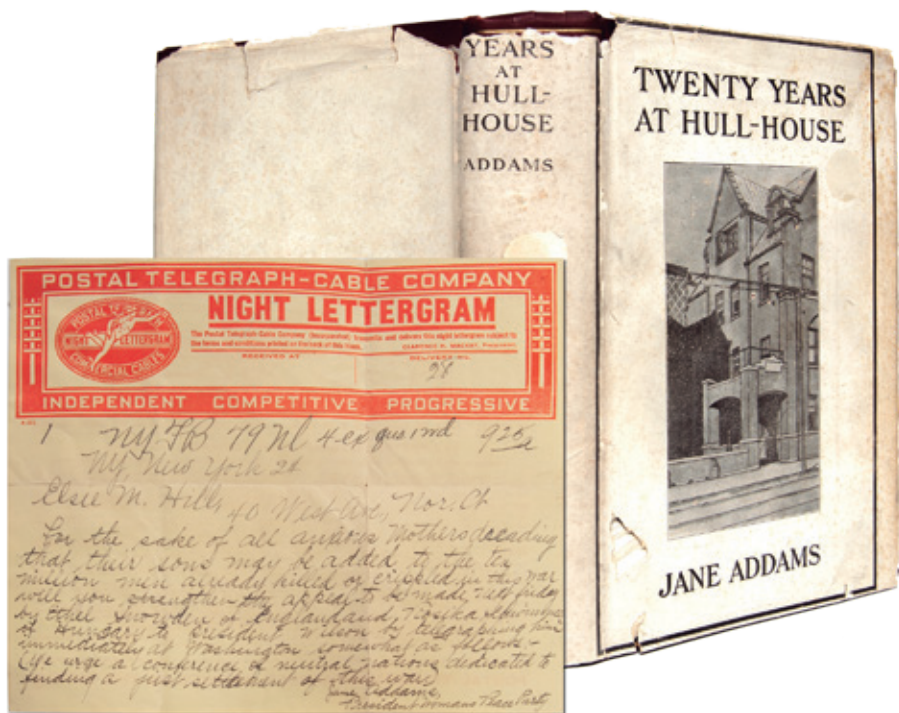 YEARS
AT
HULL-
HOUSE
ADDAMS
TWENTY YEARS
AT HULL-HOUSE
JANE ADDAMS
POSTAL TELEGRAPH-CABLE COMPANY
POSTAL TELEGRAPH
NIGHT LETTERGRAM
COMMERCIAL CABLES
NIGHT LETTERGRAM
The Postal Telegraph-Cable Company (Incorporated) transmits and delivers this night lettergram subject to
the terms and conditions printed on the back of this blank.
CLARENCE H. MACKAY, President.
RECEIVED AT
DELIVERY NO.
28
INDEPENDENT COMPETITIVE PROGRESSIVE
1 NY FB 79 NL 4 ex
NY, New York 24
Elsie M. Hill, 40 West Ave, Nor, Ct
For the sake of all anxious Mothers dreading
that their sons may be added to the ten
million men already killed or crippled in this war
will you strengthen the appeal to be made next friday
by Ethel Snowden of England and, Rosika
of Hungary to president Wilson by telegraphing him
immediately at Washington somewhat as follows-
(We urge a conference of neutral nations dedicated to
finding a just settlement of this war)
Jane Addams,
President Womans Peace Party